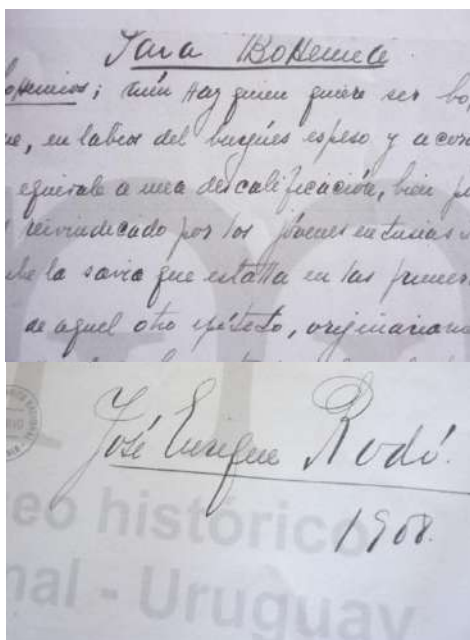 Para Bohemia
bohemios; aún hay quien quiere ser bo
ue, en labios del burgués espeso y acom
equivale a una descalificación, bien p
reivindicado por los jóvenes entusias
de la savia que estalla en las primer
de aquel otro epíteto, originariam
José Enrique Rodó.
1908.
eo histórico
nal - Uruguay